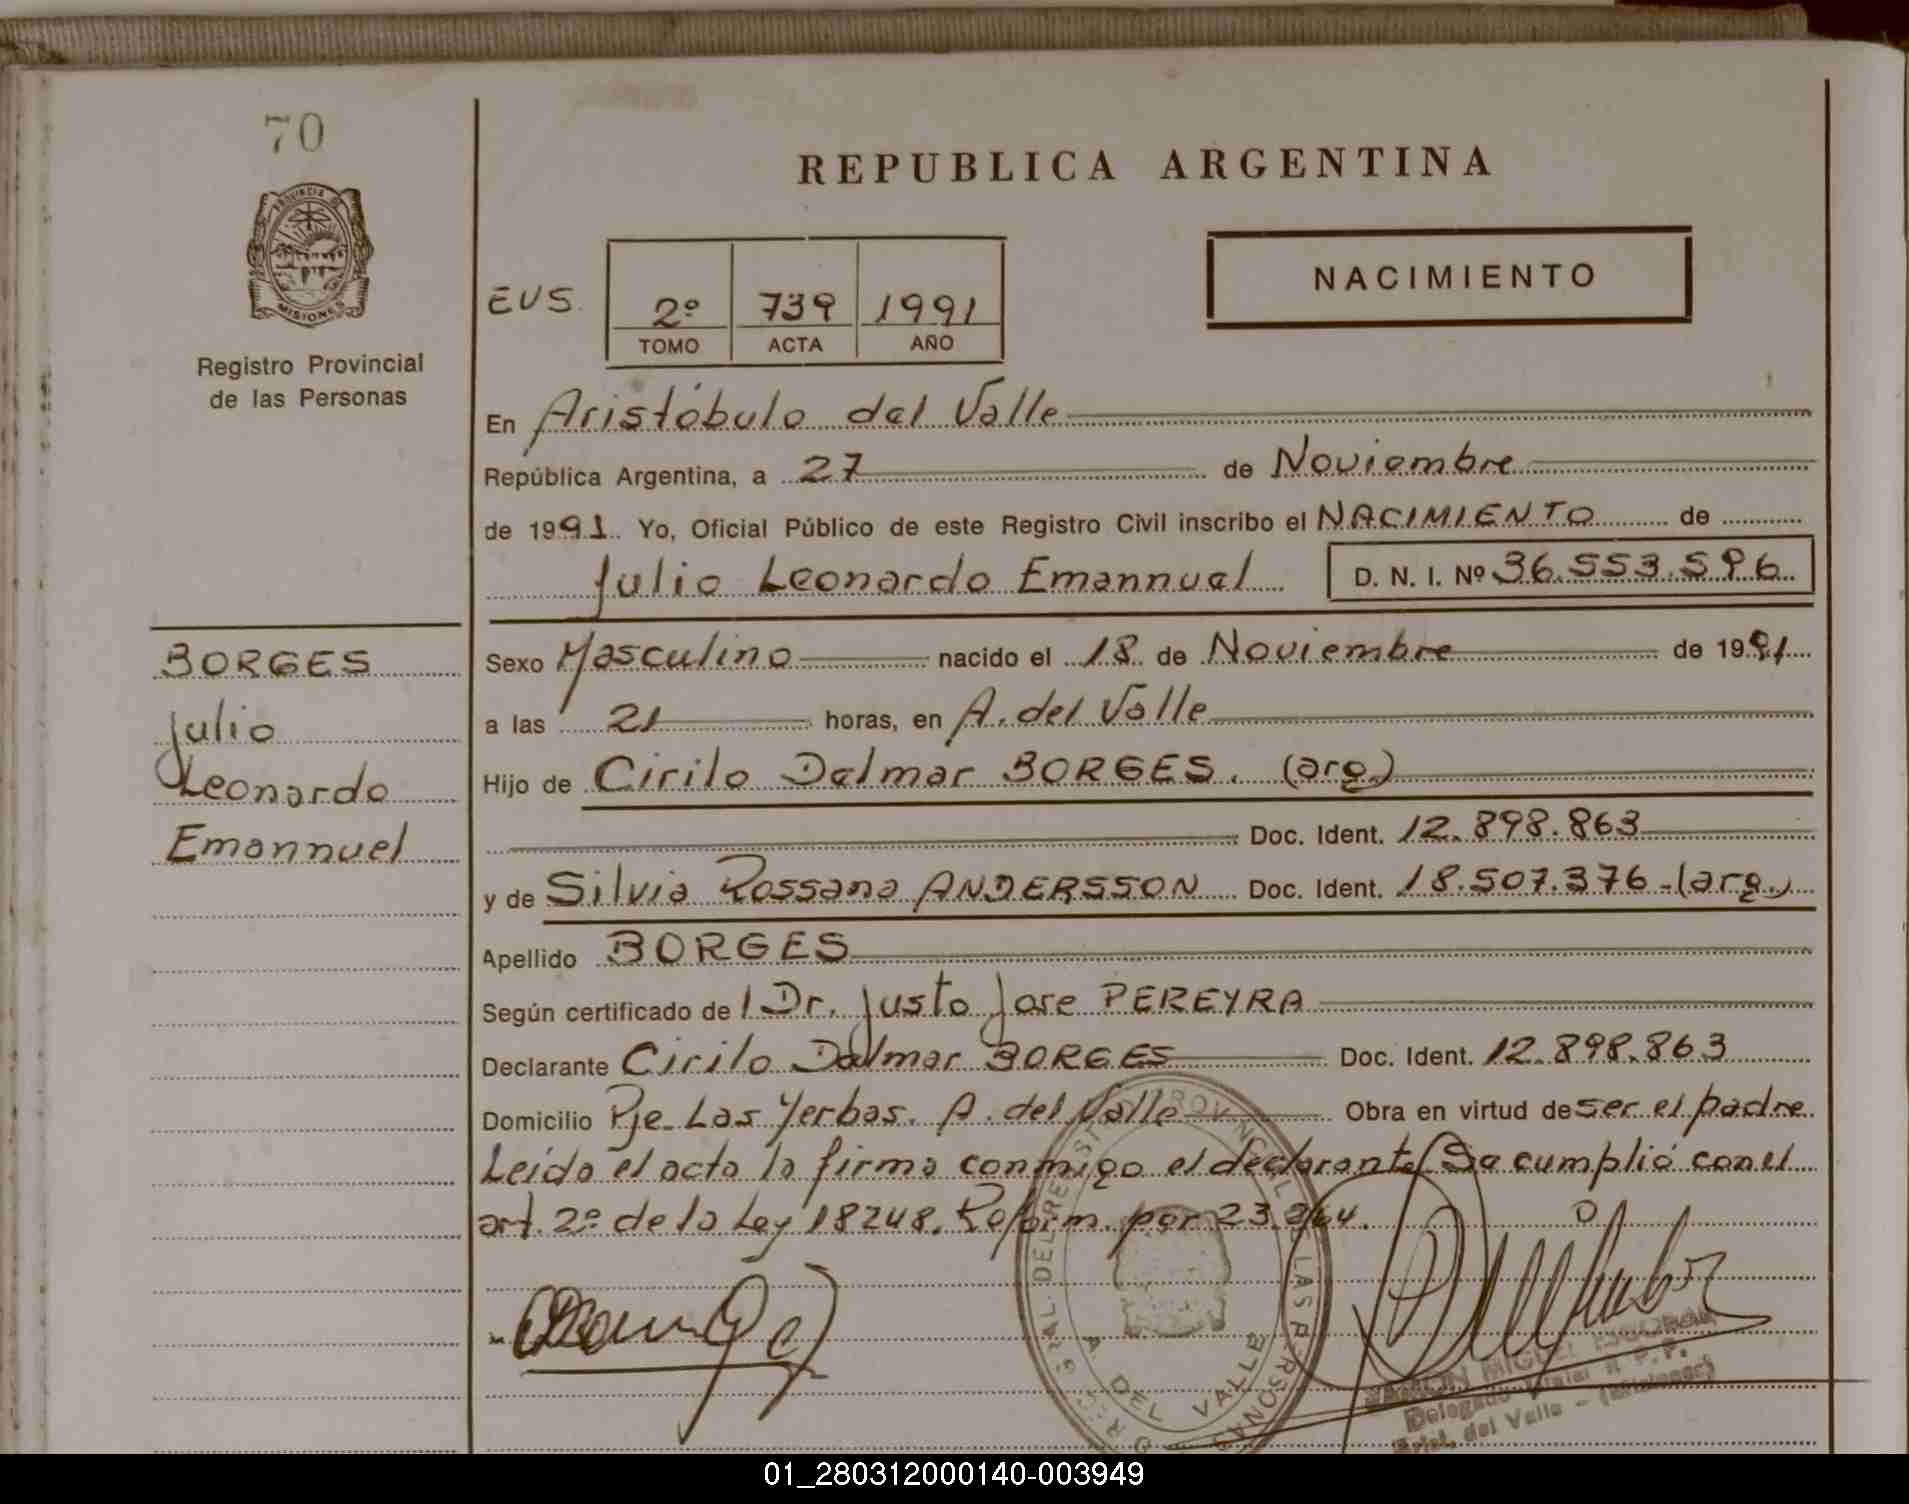 70
PROVINCIA DE
MISIONES
Registro Provincial
de las Personas
REPUBLICA ARGENTINA
EUS.
2º 739 1991
TOMO ACTA AÑO
NACIMIENTO
En Aristóbulo del Valle
República Argentina, a 27 de Noviembre
de 1991. Yo, Oficial Público de este Registro Civil inscribo el NACIMIENTO de
Julio Leonardo Emannuel D. N. I. Nº 36.553.596
BORGES
Julio
Leonardo
Emannuel
Sexo Masculino nacido el 18 de Noviembre de 1991
a las 21 horas, en A. del Valle
Hijo de Cirilo Dalmar BORGES. (arg.)
Doc. Ident. 12.898.863
y de Silvia Rossana ANDERSSON Doc. Ident. 18.507.376-(arg.)
Apellido BORGES
Según certificado de l Dr. Justo Jose PEREYRA
Declarante Cirilo Dalmar BORGES Doc. Ident. 12.898.863
Domicilio Pje. Las Yerbas. A. del Valle Obra en virtud de ser el padre
Leída el acta la firma conmigo el declarante. Se cumplió con el
art. 2º de la Ley 18248. Reform. por 23.264.
GRAL. DEL REGISTRO PROVINCIAL DE LAS PERSONAS
A. DEL VALLE
RAMON MIGUEL ESCOBAR
Delegado Titular R. P. P.
Arist. del Valle - (Misiones)
01_280312000140-003949